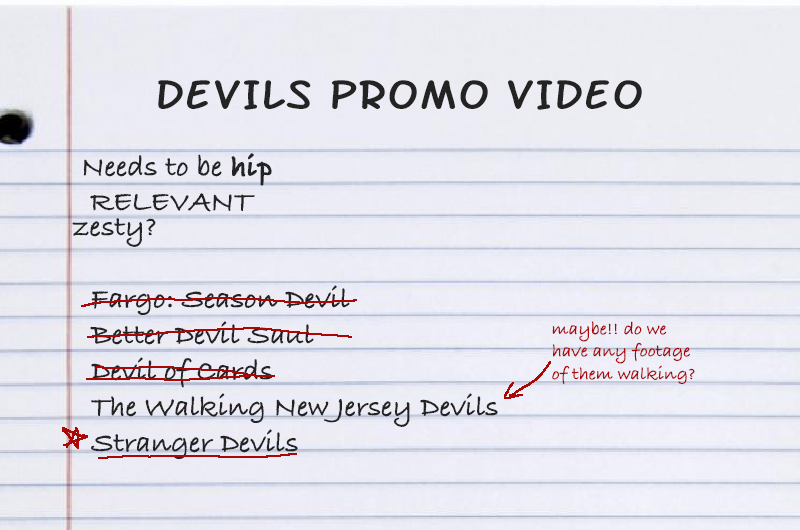 DEVILS PROMO VIDEO
Needs to be hip
RELEVANT
zesty?
Fargo: Season Devil
Better Devil Saul
Devil of Cards
The Walking New Jersey Devils
maybe!! do we
have any footage
of them walking?
Stranger Devils